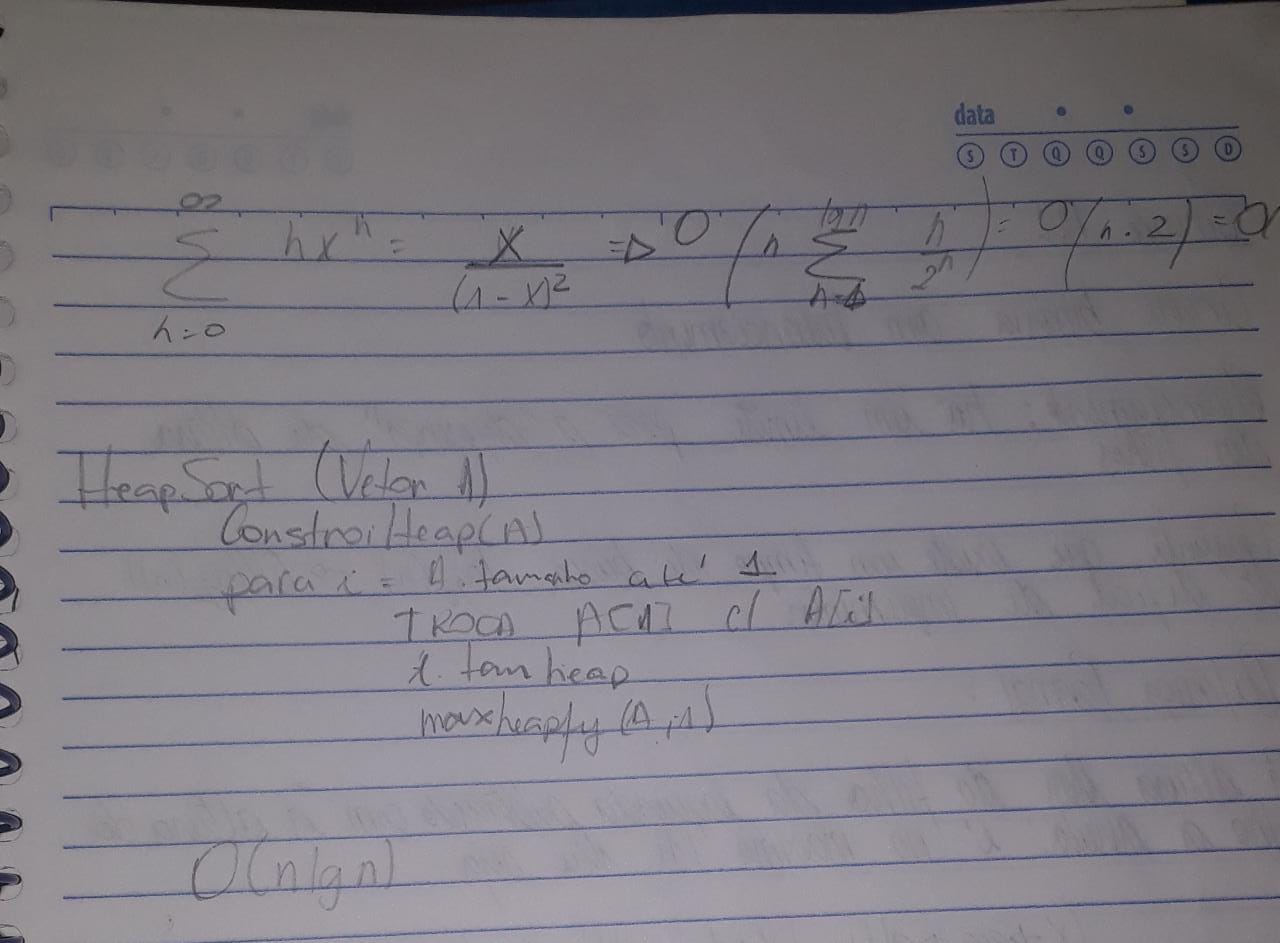 data
S T Q Q S S D
∞ lgn
Σ hx^h = x/(1-x)² => O(n Σ h/2^h) = O(n.2) = O
h=0
HeapSort (Vetor A)
ConstroiHeap(A)
para i = A.tamanho até 1
TROCA A[1] c/ A[i]
tam heap
maxheapfy (A,1)
O(nlgn)